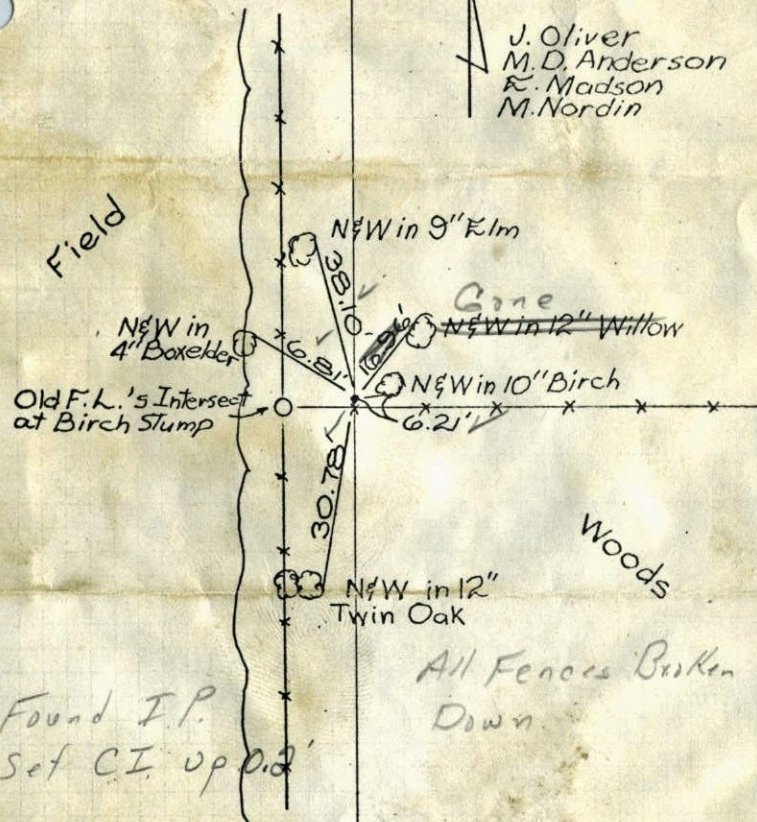 J. Oliver
M.D. Anderson
E. Madson
M. Nordin
Field
N&W in 9" Elm
38.10
Gone
N&W in 12" Willow
N&W in
4" Boxelder
6.81'
N&W in 10" Birch
Old F.L.'s Intersect
at Birch Stump
6.21'
30.78'
Woods
N&W in 12"
Twin Oak
All Fences Broken
Down
Found I.P.
Set C.I. up 0.2'